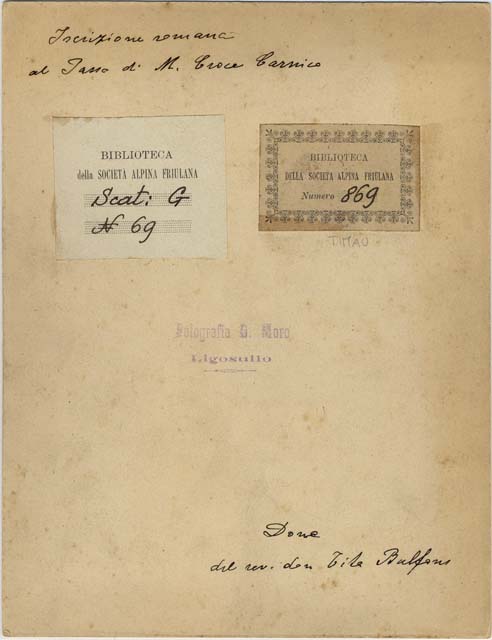 Iscrizione romana
al Passo di M. Croce Carnico
BIBLIOTECA
della SOCIETÀ ALPINA FRIULANA
Scat: G
N 69
BIBLIOTECA
DELLA SOCIETÀ ALPINA FRIULANA
Numero 869
TIMAU
Fotografia G. Moro
Ligosullo
Dono
del rev. don Tita